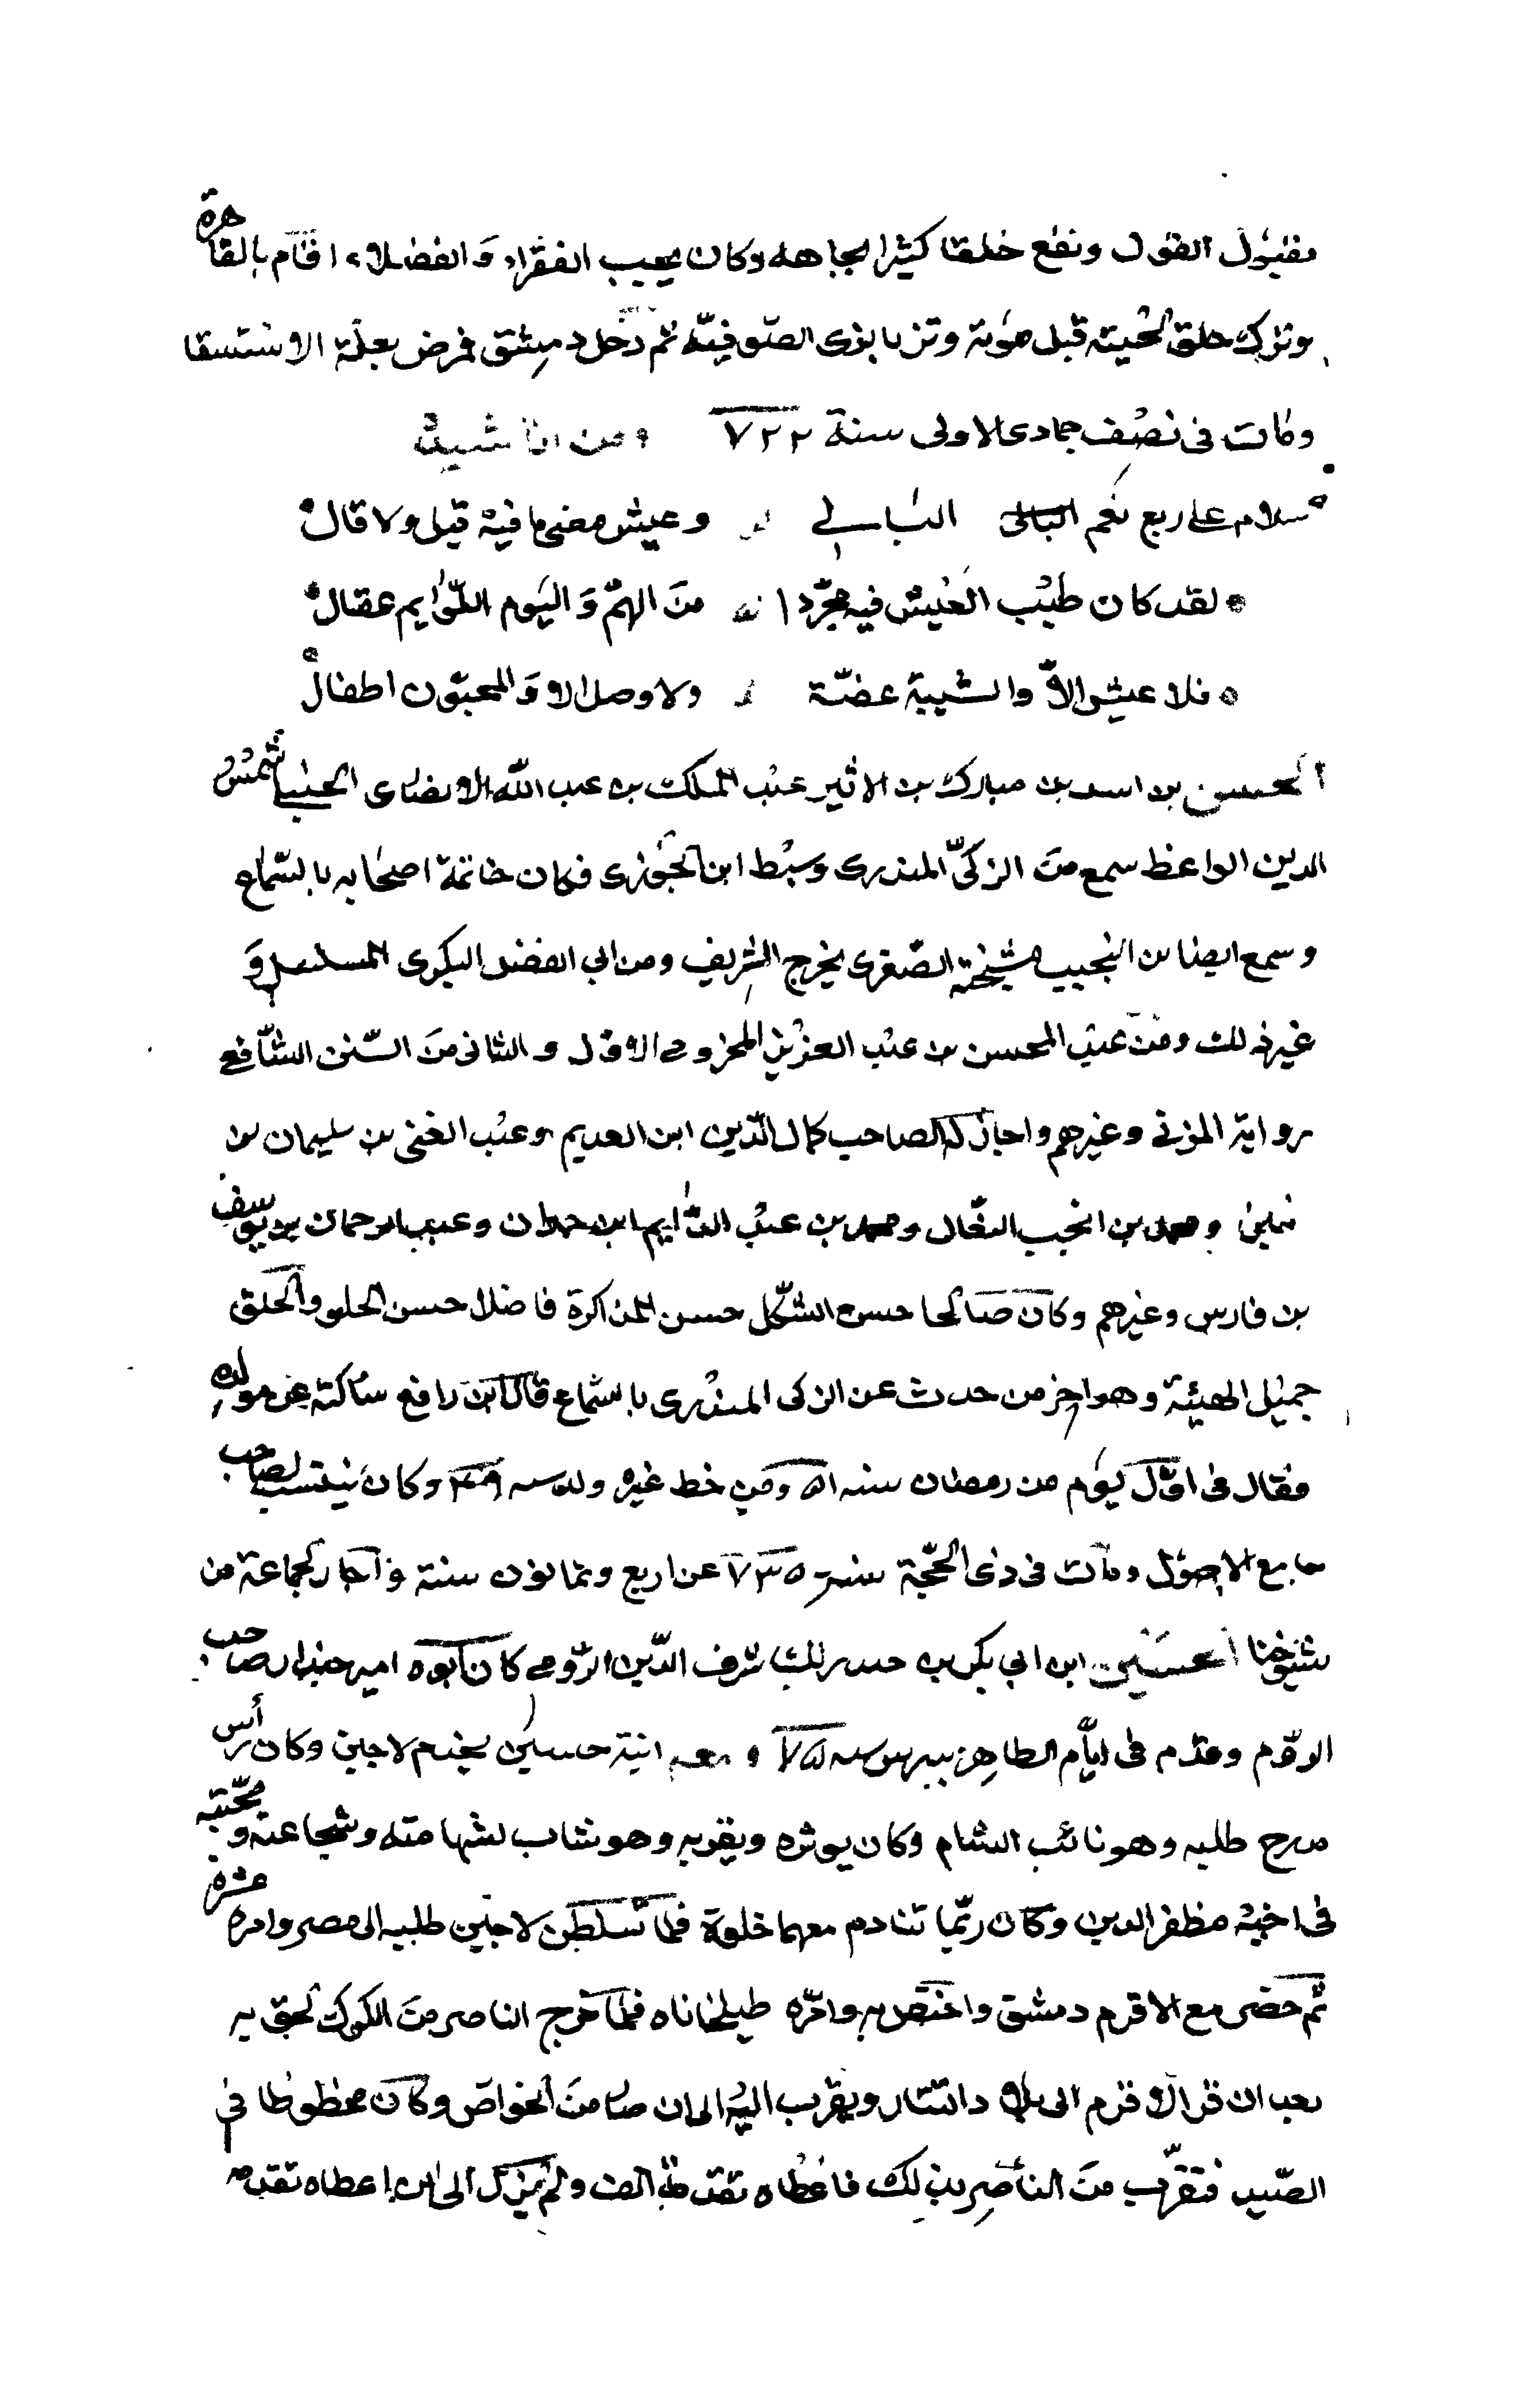 مقبول القول ونفع خلقا كثيرا بجاهه وكان يحب الفقراء والفضلاء اقام بالقاهرة
وترك حلق لحيته قبل موته وتزيا بزى الصوفية ثم دخل دمشق فمرض بعلة الاستسقا
ومات فى نصف جمادى الاولى سنة ٧٢٢ ومن اناشيده
سلام على ربع نعم البالى وعيش مضى ما فيه قيل ولا قال
لقد كان طيب العيش فيه مجردا من الهم واليوم اللوايم عقال
فلا عيش الا والشبيبة غضة ولا وصل الا والمحبون اطفال
الحسن بن اسد بن مبارك بن الاثير عبد الملك بن عبد الله الانصارى الحنبلى شمس
الدين الواعظ سمع من الزكى المنذرى وسبط ابن الجوزى فكان خاتمة اصحابه بالسماع
وسمع ايضا من النجيب مشيخته الصغرى بخرج الشريف ومن ابى الفضل البكرى المسلسل و
غير ذلك ومن عبد المحسن بن عبد العزيز المخزومى الاول والثانى من السنن الشافعى
رواية المزنى وغيرهم واجاز له الصاحب كمال الدين ابن العديم وعبد الغنى بن سليمان بن
بنين ومحمد بن انجب النعال ومحمد بن عبد الدايم ابن حمدان وعبد الرحمان بن يوسف
بن فارس وغيرهم وكان صالحا حسن الشكل حسن المذاكرة فاضلا حسن الخلق والخلق
جميل الهيئة وهو اخر من حدث عن الزكى المنذرى باسماع قال ابن رافع سالته عن مولده
فقال فى اول يوم من رمضان سنه ٥١ ومن خط غيره ولد سنه ٤٩ وكان ينتسب لصاحب
جامع الاصول ومات فى ذى الحجة سنة ٧٣٥ عن اربع وثمانون سنة واجاز لجماعة من
شيوخنا الحسين ابن ابى بكر بن شرف الدين الرومى كان ابوه امير جندار صاحب
الروم وقدم فى ايام الظاهر بيبرس سنه ٧٥ ومعه ابنه حسين يخدم لاجين وكان رأس
مدرج طلبه وهو نائب الشام وكان يوثره ويقربه وهو شاب لشهامته وشجاعته ومحبته
فى اخيه مظفر الدين وكان ربما تنادم معهما خلوة فلما تسلطن لاجين طلبه الى مصر وامره عشره
ثم حضر مع الاقرم دمشق واختص به وامره طبلخاناه فلما خرج الناصر من الكرك لحق به
بعد ان فر الاقرم الى بلاد التتار وتقرب اليه الى ان صار من الخواص وكان محظوظا فى
الصيد فتقرب من الناصر بذلك فاعطاه تقدمة الف ولم يزل الى ان اعطاه تقدمه